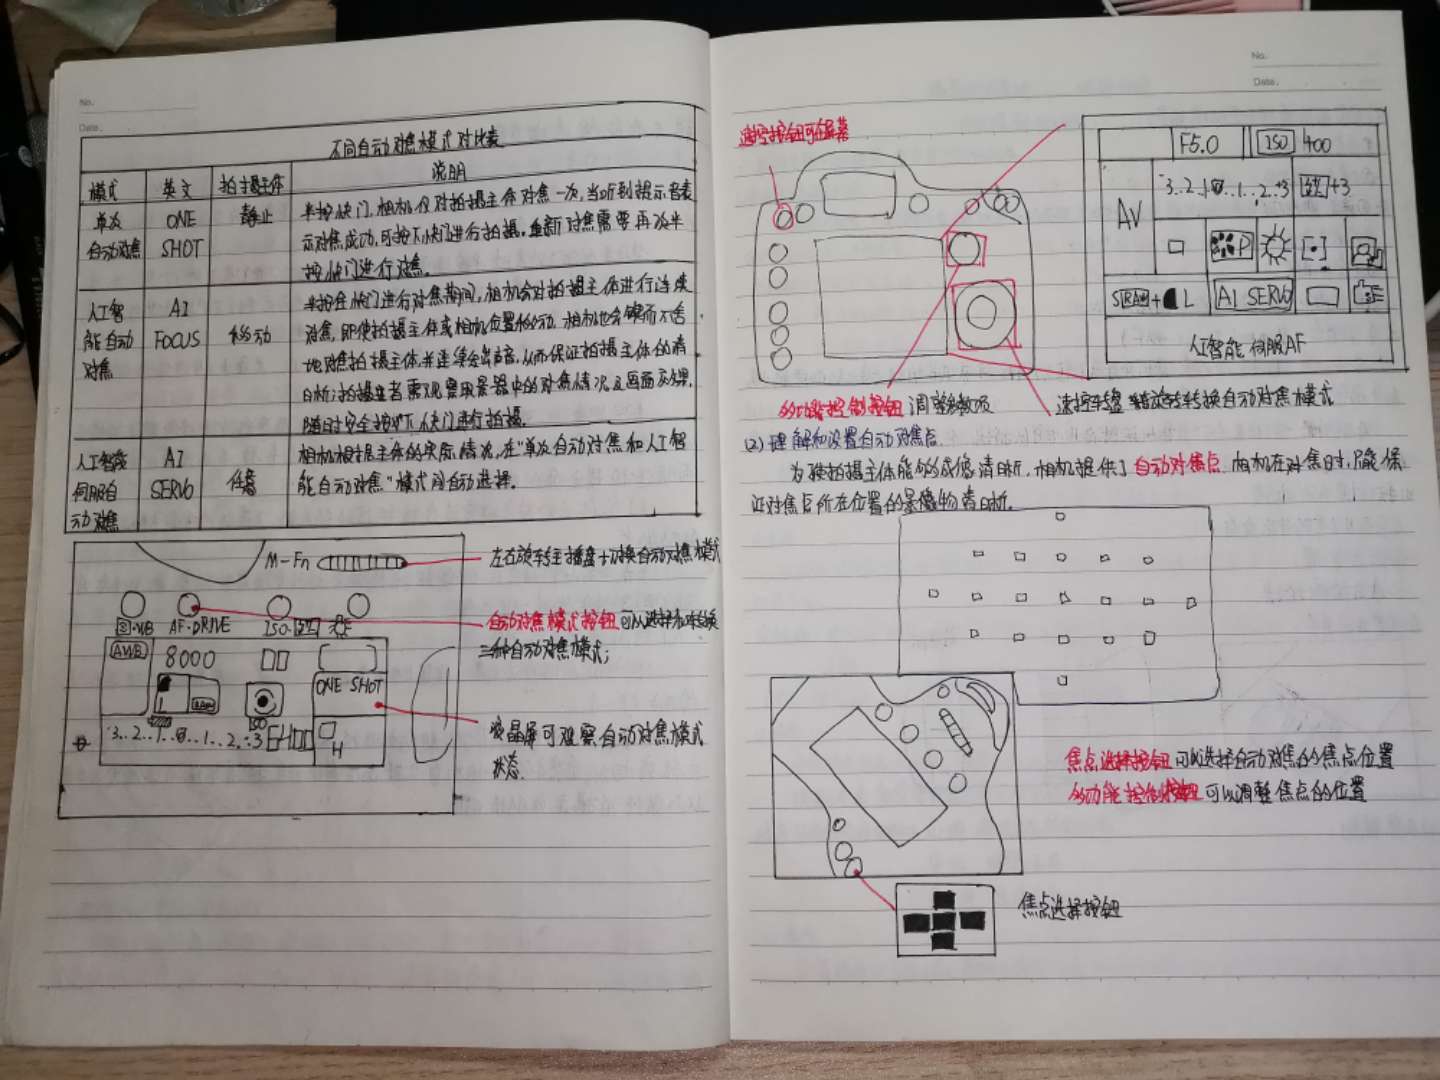 No.
Date.
不同自动对焦模式对比表
模式 英文 拍摄主体 说明
单次
自动对焦
ONE
SHOT
静止
半按快门,相机仅对拍摄主体对焦一次,当听到提示音表
示对焦成功,可按下快门进行拍摄,重新对焦需要再次半
按快门进行对焦.
人工智
能自动
对焦
AI
FOCUS
移动
半按住快门进行对焦期间,相机会对拍摄主体进行连续
对焦,即使拍摄主体或相机位置移动.相机也会锲而不舍
地对焦拍摄主体,并连续会出声音,从而保证拍摄主体的清
晰;拍摄者需观察取景器中的对焦情况及画面效果,
随时安全按下快门进行拍摄.
人工智能
伺服自
动对焦
AI
SERVO
任意
相机根据主体的实际情况,在"单次自动对焦和人工智
能自动对焦"模式间自动选择.
M-Fn
左右旋转主拨盘切换自动对焦模式
WB AF·DRIVE ISO
自动对焦模式按钮可以选择和转换
三种自动对焦模式;
AWB 8000
L RAW
ONE SHOT
ISO
3..2..1..0..1..2..:3
H
液晶屏可观察自动对焦模式
状态.
No.
Date.
速控按钮可在屏幕
F5.0 ISO 400
AV
3..2..1..0..1..2..:3 +3
P
RAW+L AI SERVO
人工智能伺服AF
多功能控制按钮 调整参数项
速控转盘 旋转转换自动对焦模式
(2)理解和设置自动对焦点.
为使拍摄主体能够成像清晰.相机提供了自动对焦点.相机在对焦时,只能保
证对焦点所在位置的景像物清晰.
焦点选择按钮可以选择自动对焦的焦点位置
多功能控制按钮可以调整焦点的位置
焦点选择按钮